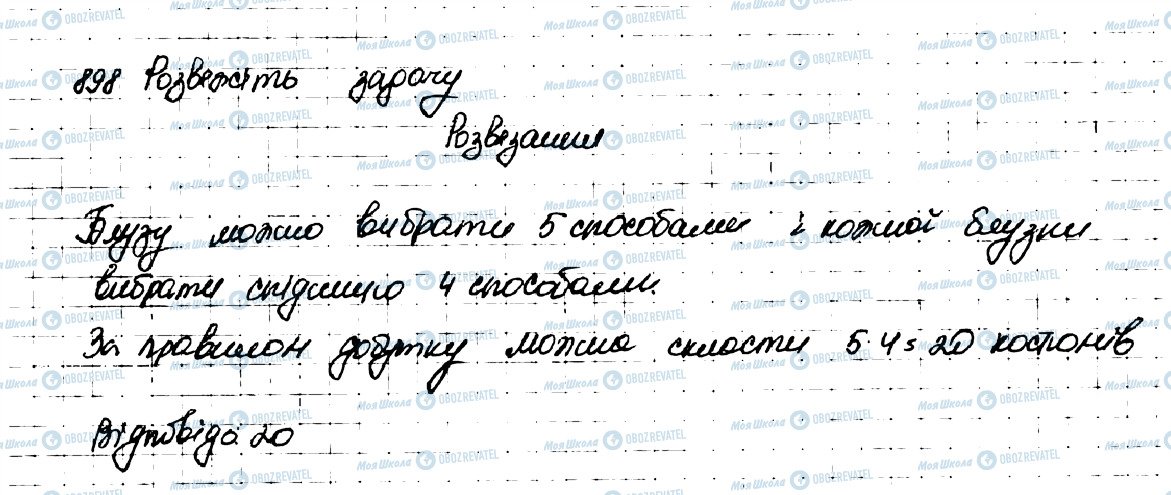 898 Розвежіть задачу
Розвезання
Блузу можно вибрати 5 способами і кожной блузки
вибрати спідницю 4 способами.
За правилом добутку можна скласти 5·4=20 костюмів
Відповідь 20